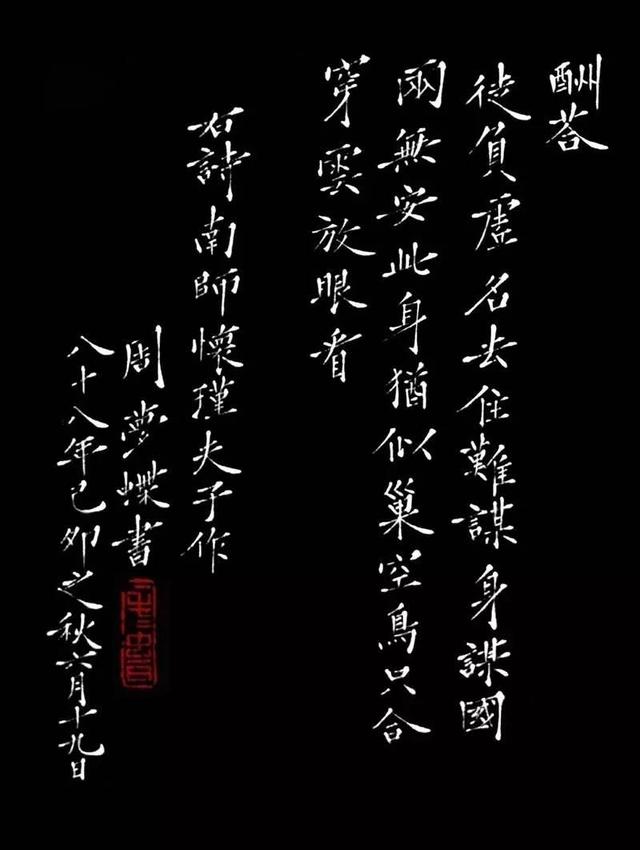 酬荅
徒負虛名去住難謀身謀國
兩無安此身猶似巢空鳥只合
穿雲放眼看
右詩南師懷瑾夫子作
周夢蝶書
八十八年己卯之秋六月十九日